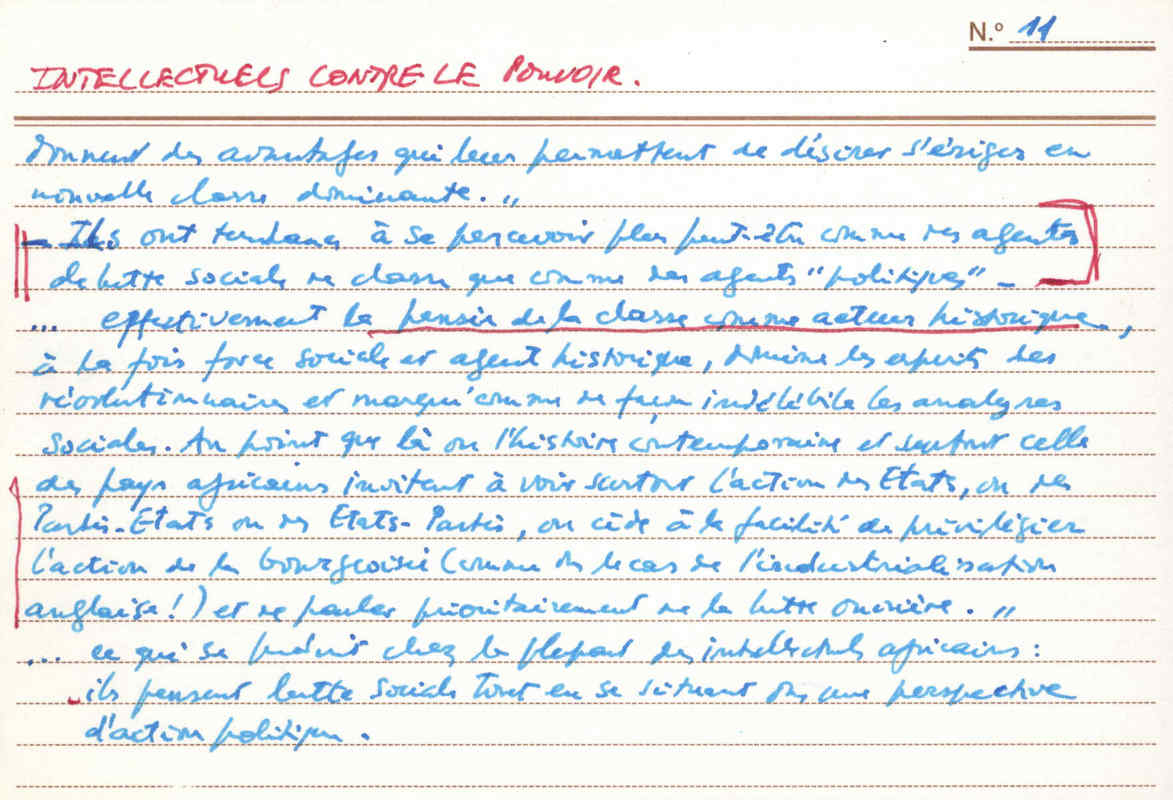 N.º 11
INTELLECTUELS CONTRE LE POUVOIR.
donnent des avantages qui leur permettent de désirer s'ériger en
nouvelle classe dominante. "
- Ils ont tendance à se percevoir plus peut-être comme des agents
de lutte sociale de classe que comme des agents "politiques" -
... effectivement la pensée de la classe comme acteur historique,
à la fois force sociale et agent historique, domine les esprits des
révolutionnaires et marqu' comme de façon indélébile les analyses
sociales. Au point que là où l'histoire contemporaine et surtout celle
des pays africains invitent à voir surtout l'action des Etats, ou des
Partis-Etats ou des Etats-Partis, on cède à la facilité de privilégier
l'action de la bourgeoisie (comme ds le cas de l'industrialisation
anglaise!) et de parler prioritairement de la lutte ouvrière. "
... ce qui se produit chez la plupart des intellectuels africains :
ils pensent lutte sociale tout en se situant ds une perspective
d'action politique.